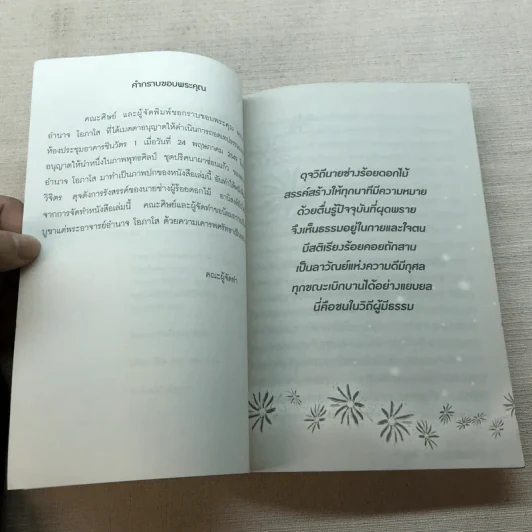 คำกราบขอบพระคุณ
คณะศิษย์ และผู้จัดพิมพ์ขอกราบขอบพระคุณ
อำนาจ โอภาโส ที่ได้เมตตาอนุญาตให้ดำเนินการถอดเทป
ห้องประชุมอาคารชินวัตร 1 เมื่อวันที่ 24 พฤษภาคม
อนุญาตให้นำหนึ่งในภาพพุทธศิลป์ ชุดปริศนายาซ่อนแก้ว
อำนาจ โอภาโส มาทำเป็นภาพปกของหนังสือเล่มนี้
วิจิตร ดุจดังการรังสรรค์ของนายช่างผู้ร้อยดอกไม้
จากการจัดทำหนังสือเล่มนี้ คณะศิษย์และผู้จัดทำขอน้อม
บูชาแด่พระอาจารย์อำนาจ โอภาโส ด้วยความเคารพ
คณะผู้จัดทำ
ดุจวิถีนายช่างร้อยดอกไม้
สรรค์สร้างให้ทุกนาทีมีความหมาย
ด้วยตื่นรู้ปัจจุบันที่ผุดพราย
จึงเห็นธรรมอยู่ในกายและใจตน
มีสติเรียงร้อยคอยถักสาน
เป็นลาวัณย์แห่งความดีมีกุศล
ทุกขณะเบิกบานได้อย่างแยบยล
นี่คือชนในวิถีผู้มีธรรม